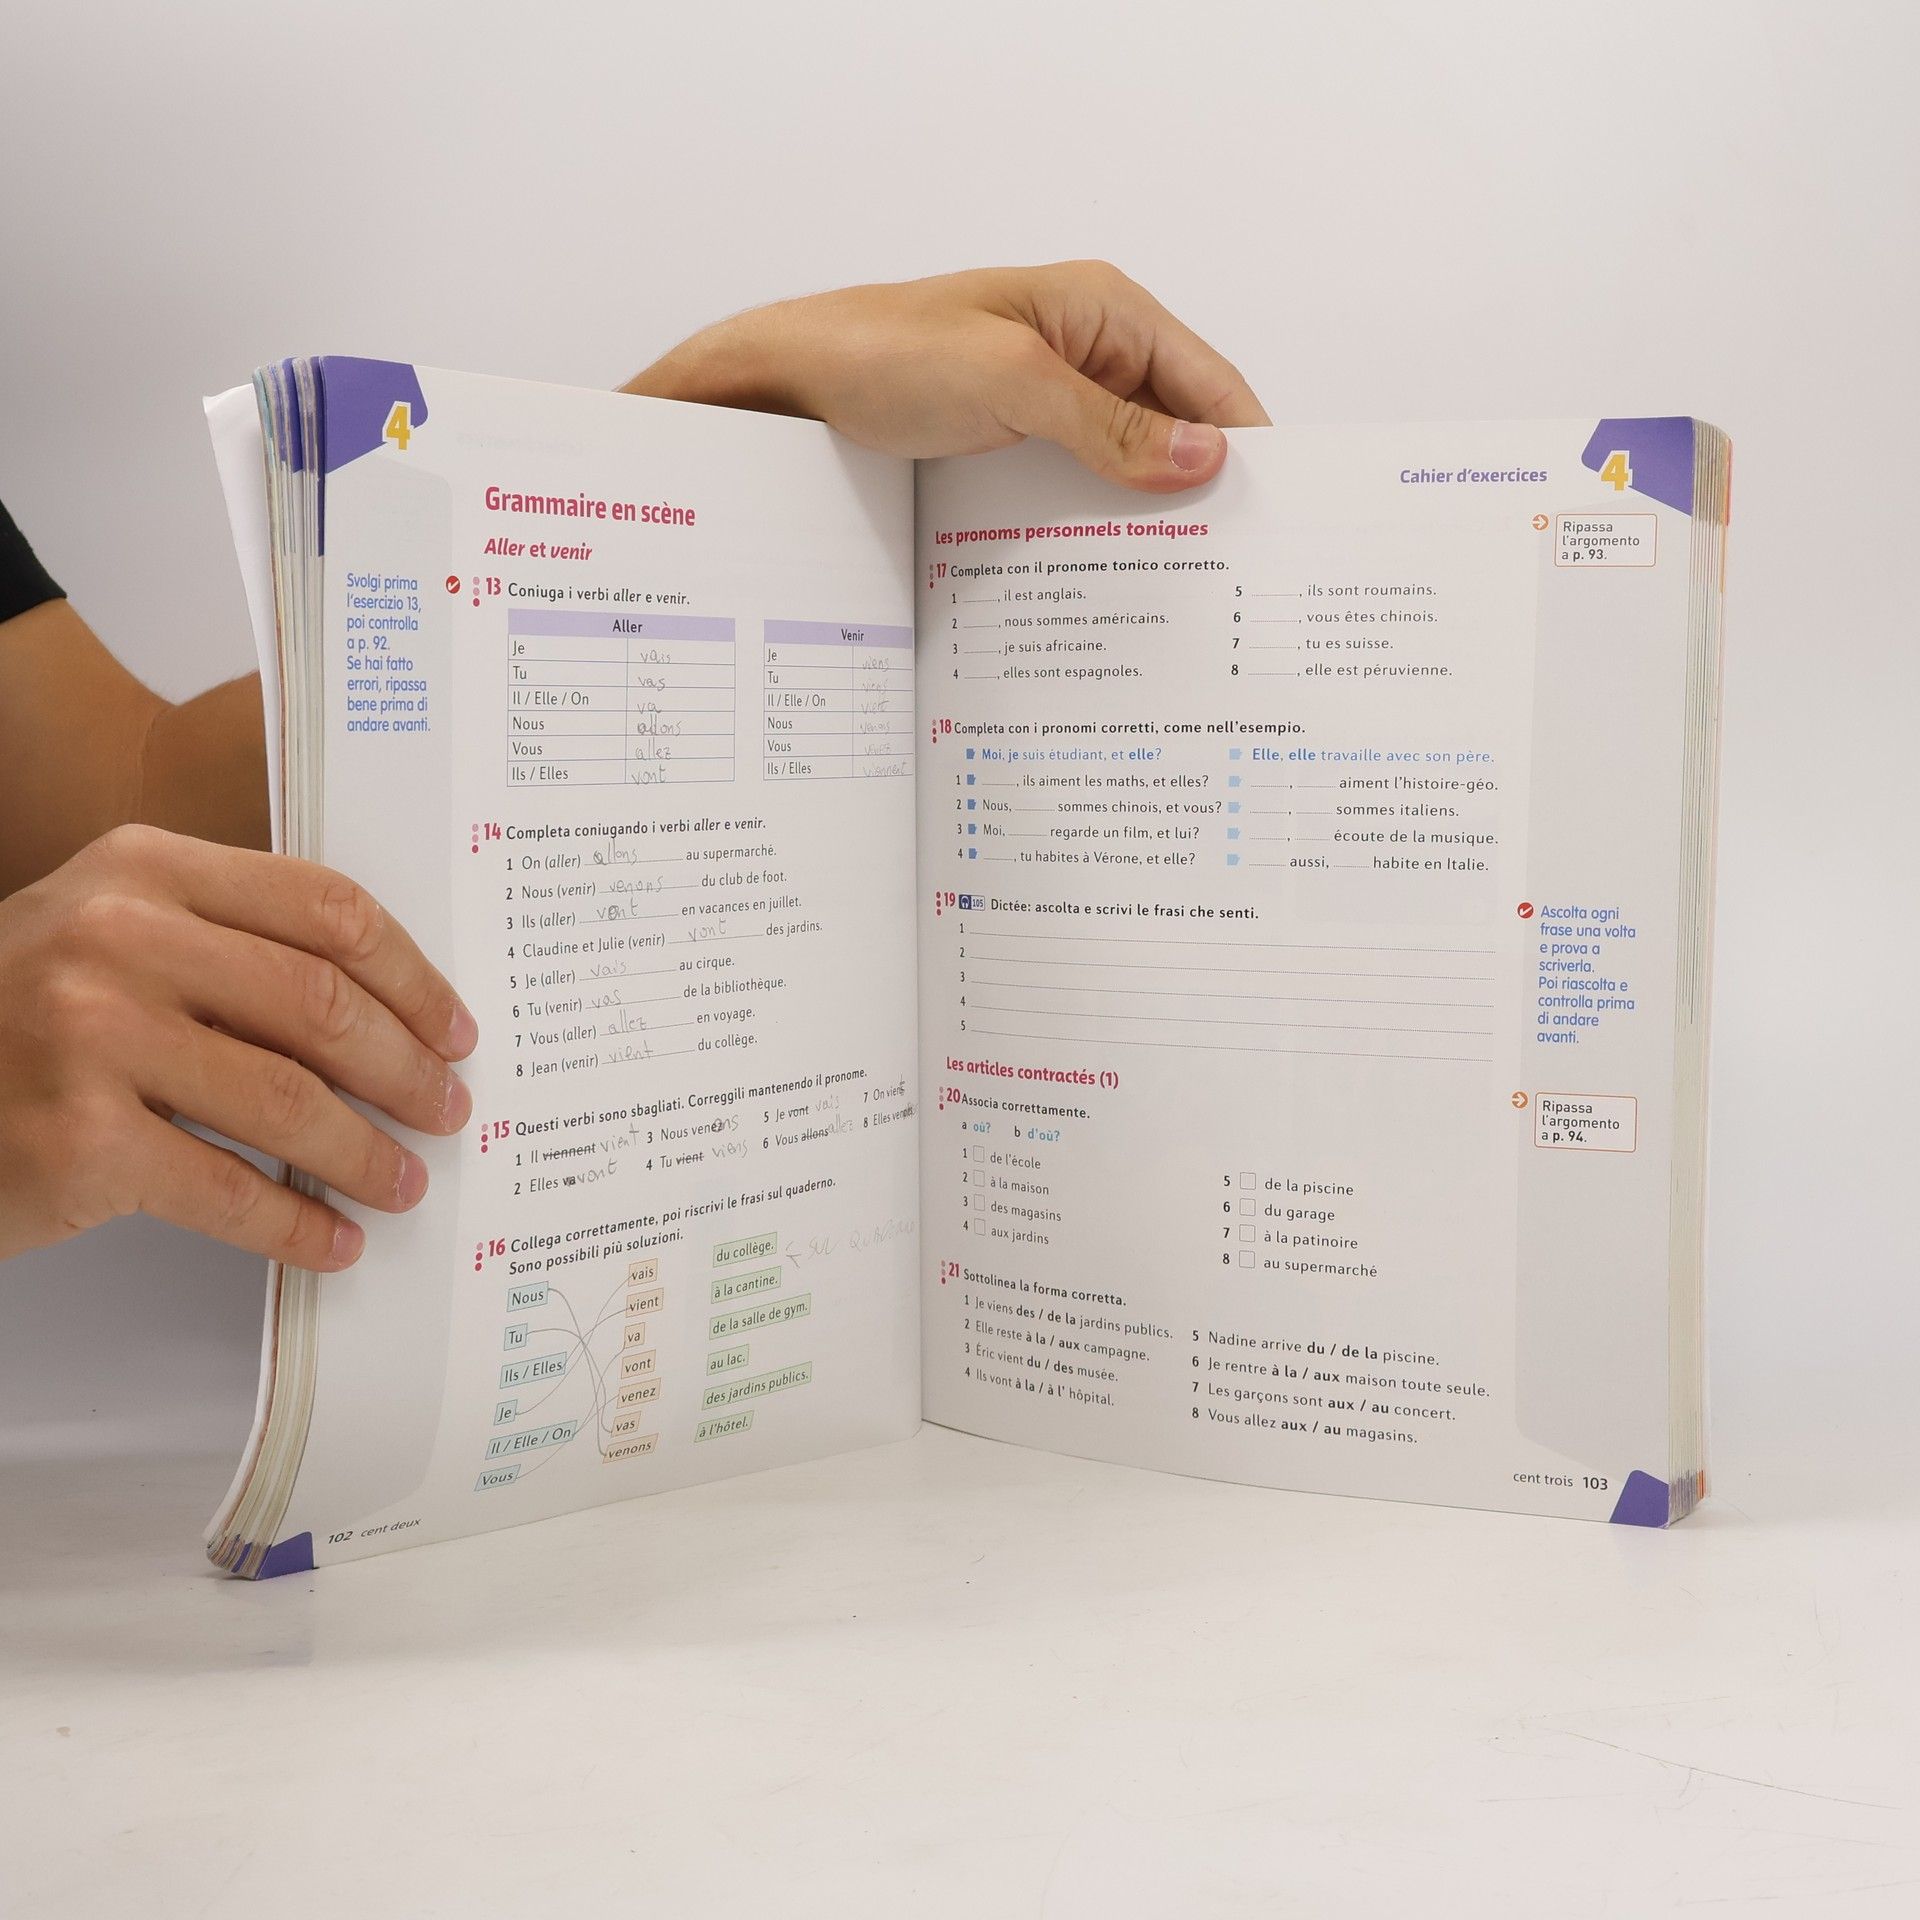 4
Grammaire en scène
Aller et venir
Svolgi prima
l'esercizio 13,
poi controlla
a p. 92.
Se hai fatto
errori, ripassa
bene prima di
andare avanti.
13 Coniuga i verbi aller e venir.
Aller
Je vais
Tu vas
Il / Elle / On va
Nous allons
Vous allez
Ils / Elles vont
Venir
Je viens
Tu viens
Il / Elle / On vient
Nous venons
Vous venez
Ils / Elles viennent
14 Completa coniugando i verbi aller e venir.
1 On (aller) allons au supermarché.
2 Nous (venir) venons du club de foot.
3 Ils (aller) vont en vacances en juillet.
4 Claudine et Julie (venir) vont des jardins.
5 Je (aller) vais au cirque.
6 Tu (venir) vas de la bibliothèque.
7 Vous (aller) allez en voyage.
8 Jean (venir) vient du collège.
15 Questi verbi sono sbagliati. Correggili mantenendo il pronome.
1 Il viennent vient
2 Elles va vont
3 Nous venez
4 Tu vient viens
5 Je vont vais
6 Vous allons allez
7 On
8 Elles
16 Collega correttamente, poi riscrivi le frasi sul quaderno.
Sono possibili più soluzioni.
Nous
Tu
Ils / Elles
Je
Il / Elle / On
Vous
vais
vient
va
vont
venez
vas
venons
du collège.
à la cantine.
de la salle de gym.
au lac.
des jardins publics.
à l'hôtel.
SUL
102 cent deux
Cahier d'exercices
4
Les pronoms personnels toniques
Ripassa
l'argomento
a p. 93.
17 Completa con il pronome tonico corretto.
1 , il est anglais.
2 , nous sommes américains.
3 , je suis africaine.
4 , elles sont espagnoles.
5 , ils sont roumains.
6 , vous êtes chinois.
7 , tu es suisse.
8 , elle est péruvienne.
18 Completa con i pronomi corretti, come nell'esempio.
Moi, je suis étudiant, et elle? Elle, elle travaille avec son père.
1 , ils aiment les maths, et elles? , aiment l'histoire-géo.
2 Nous, sommes chinois, et vous? , sommes italiens.
3 Moi, regarde un film, et lui? , écoute de la musique.
4 , tu habites à Vérone, et elle? aussi, habite en Italie.
19 105 Dictée: ascolta e scrivi le frasi che senti.
1
2
3
4
5
Ascolta ogni
frase una volta
e prova a
scriverla.
Poi riascolta e
controlla prima
di andare
avanti.
Les articles contractés (1)
Ripassa
l'argomento
a p. 94.
20 Associa correttamente.
a où? b d'où?
1 de l'école
2 à la maison
3 des magasins
4 aux jardins
5 de la piscine
6 du garage
7 à la patinoire
8 au supermarché
21 Sottolinea la forma corretta.
1 Je viens des / de la jardins publics.
2 Elle reste à la / aux campagne.
3 Éric vient du / des musée.
4 Ils vont à la / à l' hôpital.
5 Nadine arrive du / de la piscine.
6 Je rentre à la / aux maison toute seule.
7 Les garçons sont aux / au concert.
8 Vous allez aux / au magasins.
cent trois 103